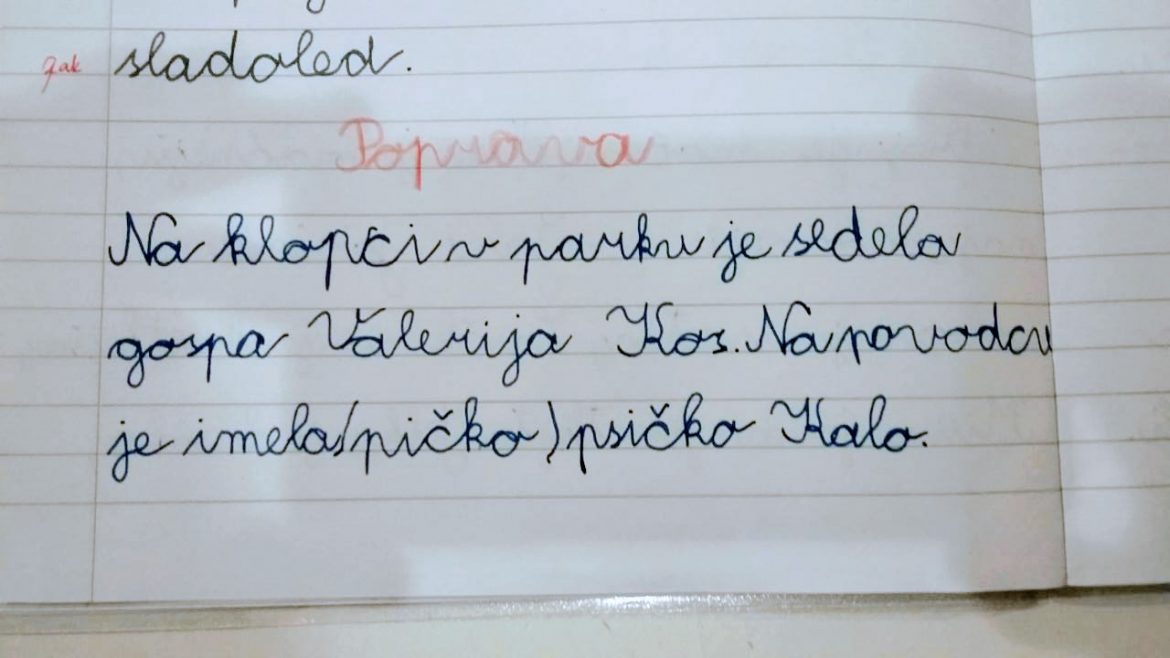 sladoled.
Poprava
Na klopci v parku je sedela
gospa Valerija Kos. Na povodcu
je imela (pičko) psičko Kalo.